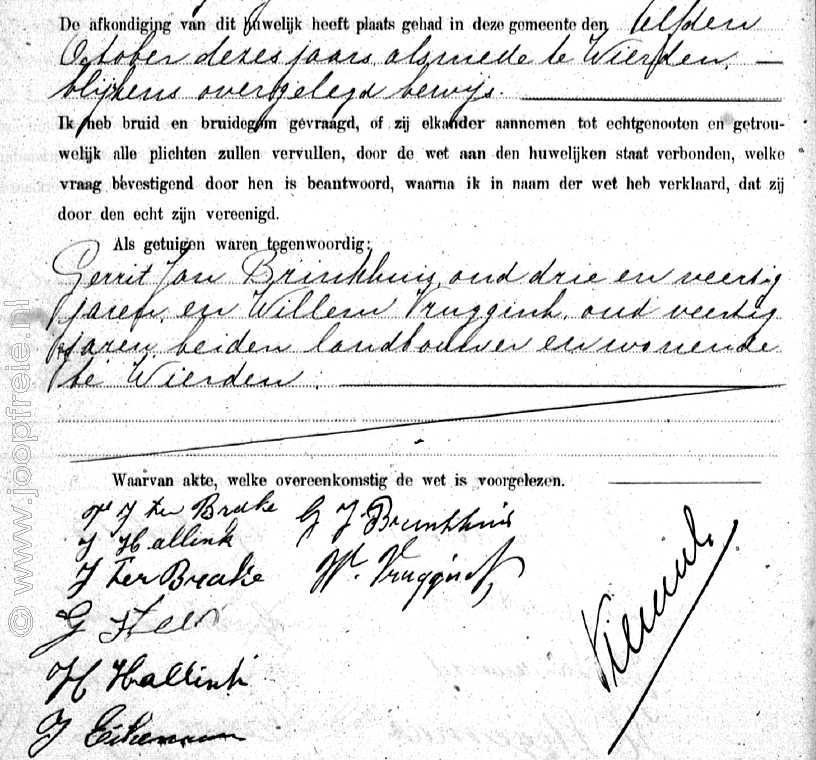 De afkondiging van dit huwelijk heeft plaats gehad in deze gemeente den elfden
October dezes jaars, alsmede te Wierden,
blijkens overgelegd bewijs.
Ik heb bruid en bruidegom gevraagd, of zij elkander aannemen tot echtgenooten en getrou-
welijk alle plichten zullen vervullen, door de wet aan den huwelijken staat verbonden, welke
vraag bevestigend door hen is beantwoord, waarna ik in naam der wet heb verklaard, dat zij
door den echt zijn vereenigd.
Als getuigen waren tegenwoordig:
Gerrit Jan Brinkhuis, oud drie en veertig
jaren, en Willem Vruggink, oud veertig
jaren, beiden landbouwer en wonende
te Wierden.
Waarvan akte, welke overeenkomstig de wet is voorgelezen.
J ter Brake G J Brinkhuis
J Hallink
J Ter Brake W. Vruggink
G
H Hallink
J
© www.joopfreie.nl